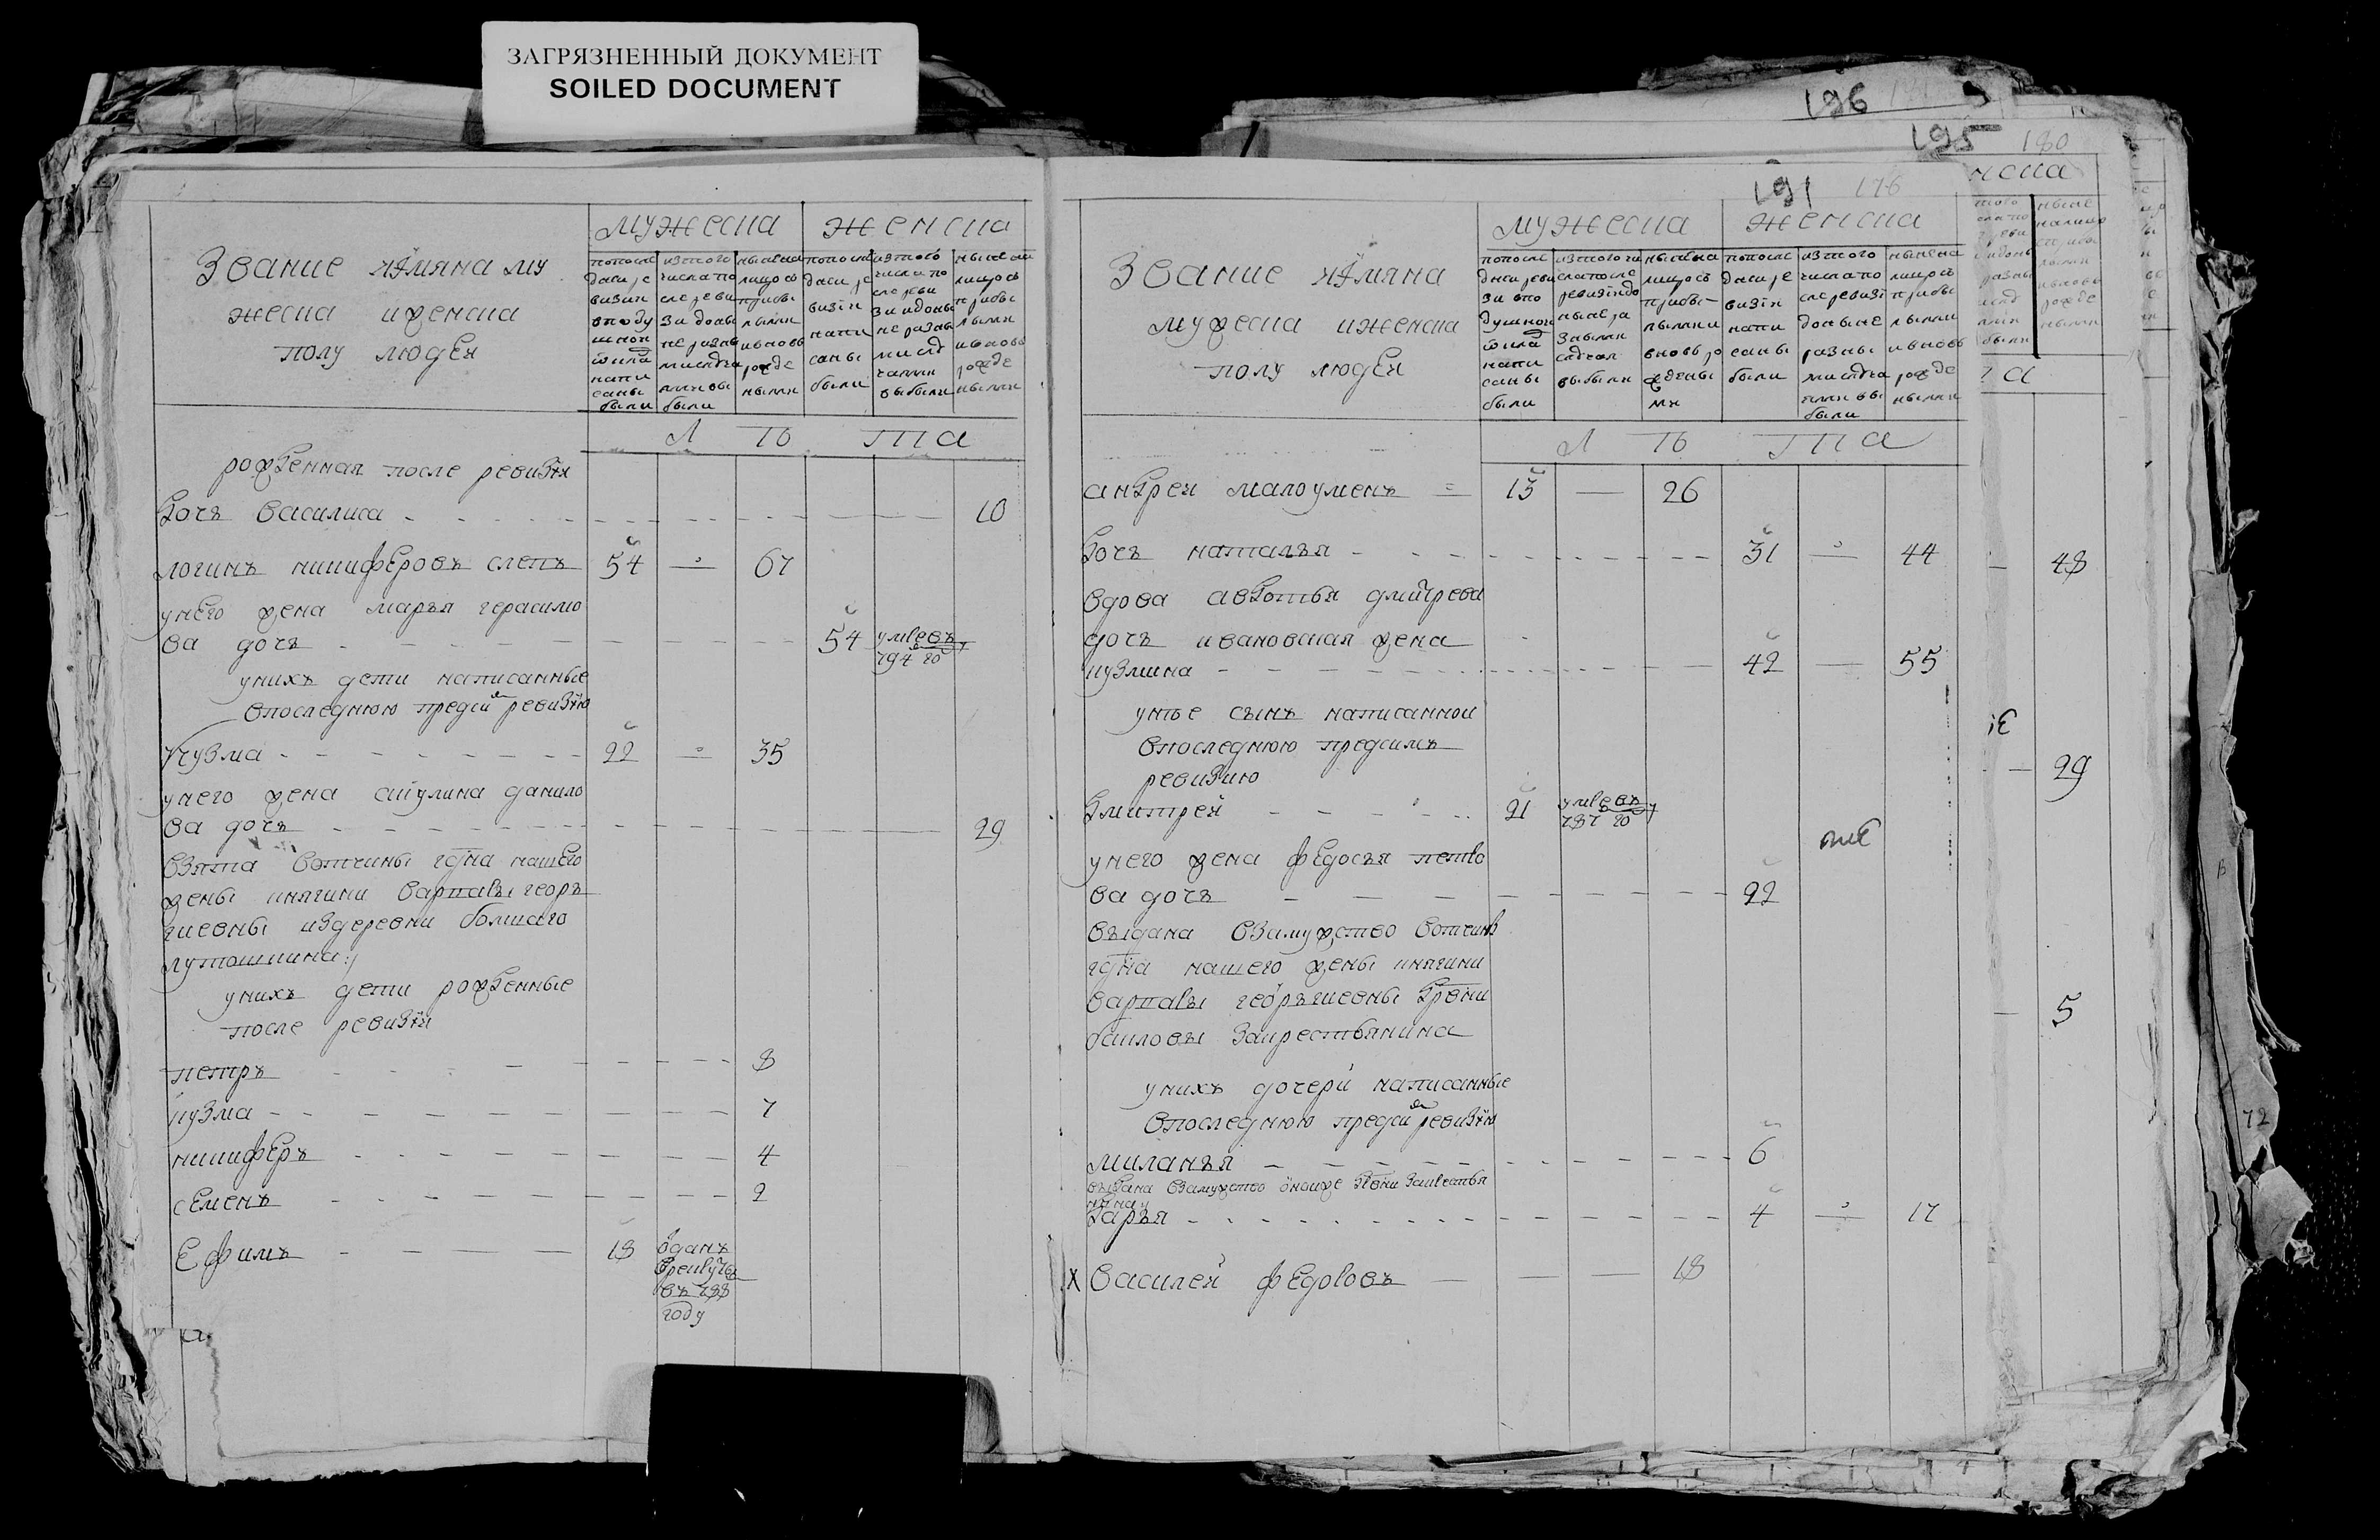 ЗАГРЯЗНЕННЫЙ ДОКУМЕНТ
SOILED DOCUMENT
196
195
180
191 176
Звание иймяна му
жеска иженска
полу людей
мужеска
женска
попосле
дней ре
визии
вподу
шной
окла
напи
саны
были
изтого
числа по
сле реви
зи доны
не разны
ми случа
ями вы
были
ныне на
лицо съ
прибы
лыми
ивновь
рожде
ными
попосле
дней ре
визiи
напи
саны
были
изтого
числа по
сле реви
зи идоны
не разны
ми слу
чаями
выбыли
ныне на
лицо съ
прибы
лыми
ивновь
рожде
ными
Л ѣ та
рожденная после ревизiи
дочь василиса 10
логинъ никифоровъ слепъ 54 67
унего жена марья герасимо
ва дочь 54 умерв
794 го
унихъ дети написанные
впоследнюю предсим ревизiю
Кузма 22 35
унего жена акулина данило
ва дочь 29
взята вотчины гдна нашего
жены княгини варвары геор
гиевны издеревни болшаго
лутошкина
унихъ дети рожденные
после ревизiи
петръ 8
кузма 7
никифоръ 4
семенъ 2
Ефимъ 18 отданъ
врекруты
въ 788
году
Звание иймяна
мужеска иженска
полу людей
мужеска
женска
попосле
дней реви
зи впо
душной
окла
напи
саны
были
изтого чи
сла после
ревизiи до
ныне ра
зными
случаи
выбыли
ныне на
лицо съ
прибы
лыми и
вновь ро
ждены
ми
попосле
дней ре
визiи
напи
саны
были
изтого
числа по
сле ревизi
доныне
разны
ми случа
ями вы
были
ныне на
лицо съ
прибы
лыми
ивновь
рожде
ными
Л ѣ та
андрей малоуменъ 13 26
дочь наталья 31 44
вдова авдотья дмитрева
дочь ивановская жена
кузмина 42 55
унее сынъ написанной
впоследнюю предсимъ
ревизию
дмитрей 21 умерв
787 го
унего жена федосья петро
ва дочь 22
выдана взамужство вотчины
гдна нашего жены княгини
варвары георьгиевны дрвни
баиловы закрестьянина
унихъ дочери написанные
впоследнюю предсим ревизiю
миланья 6
выдана взамужство оноиже дрвни закрестья
нина
дарья 4 17
х василей федоровъ 18
48
29
5
72